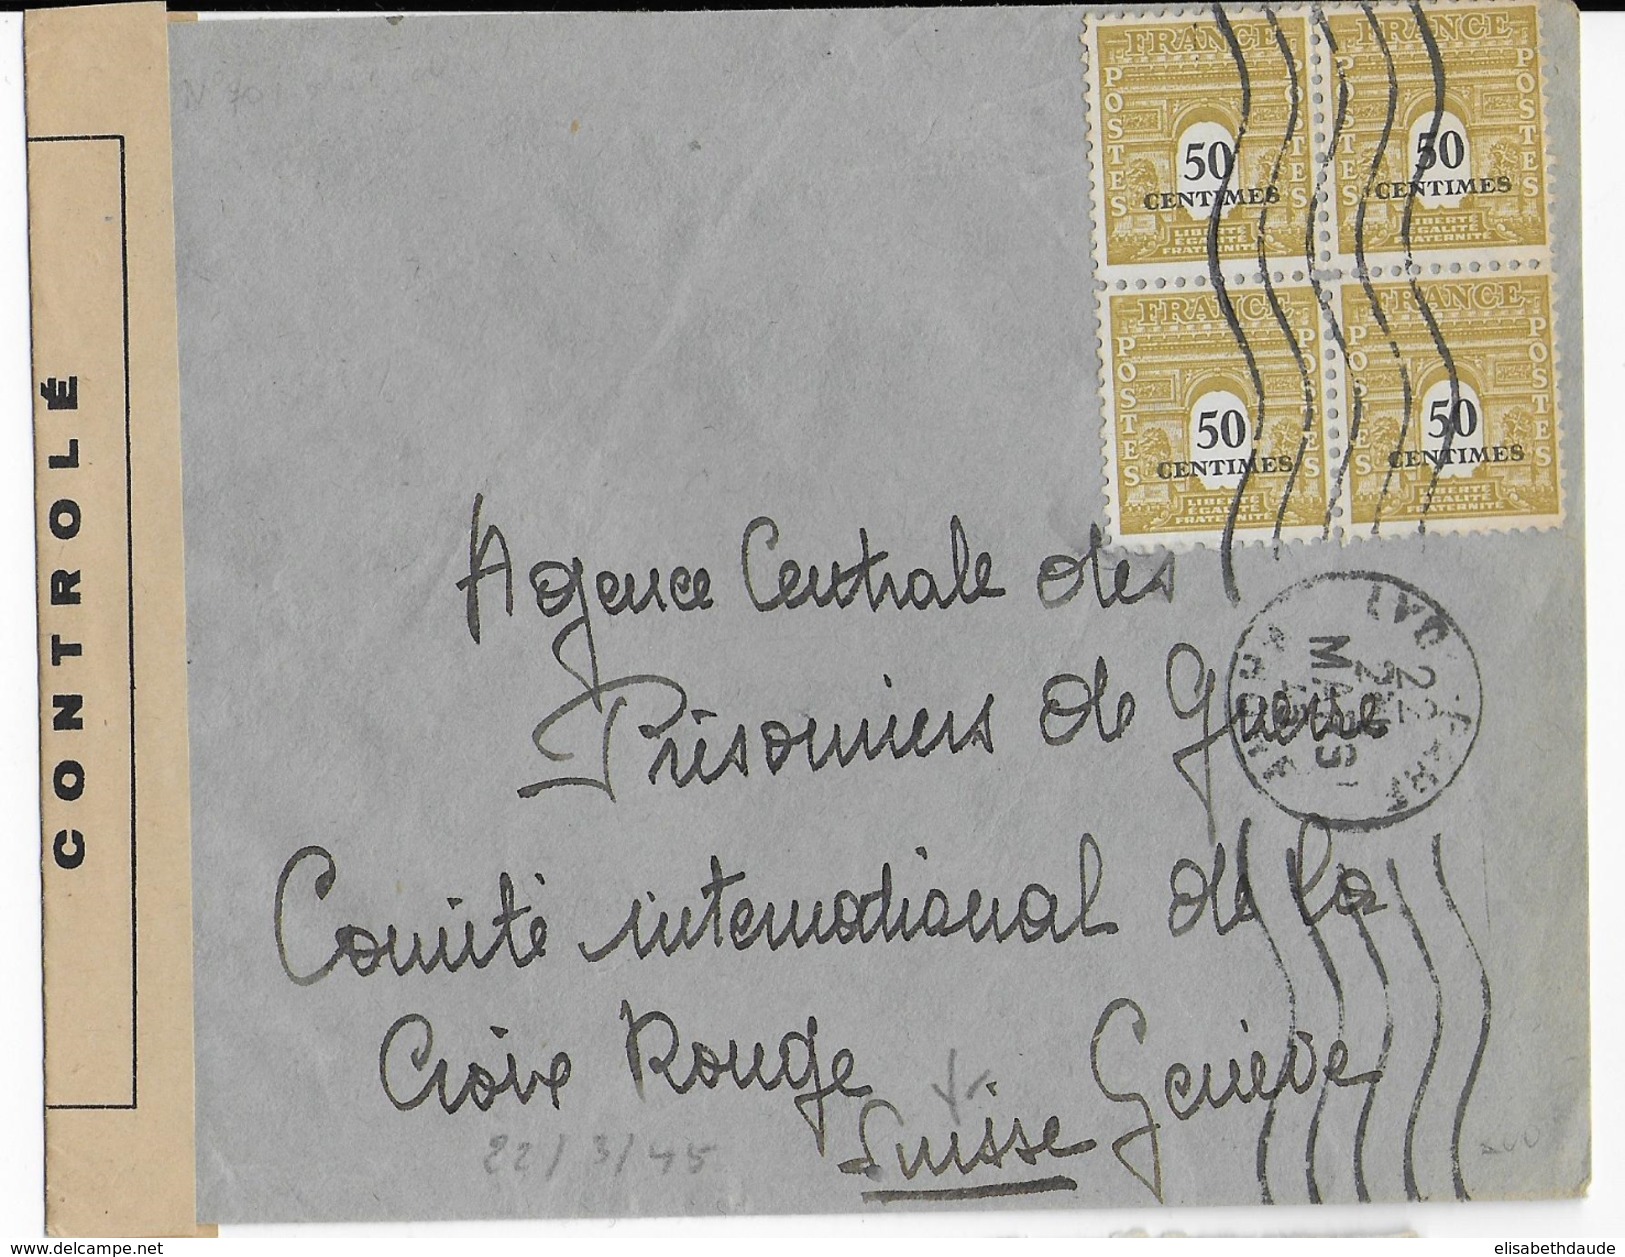 CONTROLÉ
FRANCE
POSTES
POSTES
50
CENTIMES
LIBERTÉ
EGALITÉ
FRATERNITÉ
FRANCE
POSTES
POSTES
50
CENTIMES
LIBERTÉ
EGALITÉ
FRATERNITÉ
FRANCE
POSTES
POSTES
50
CENTIMES
LIBERTÉ
EGALITÉ
FRATERNITÉ
FRANCE
POSTES
POSTES
50
CENTIMES
LIBERTÉ
EGALITÉ
FRATERNITÉ
Agence Centrale des
Prisonniers de Guerre
Comité international de la
Croix Rouge Genève
Suisse
22/3/45
22
MARS
delcampe.net
elisabethdaude